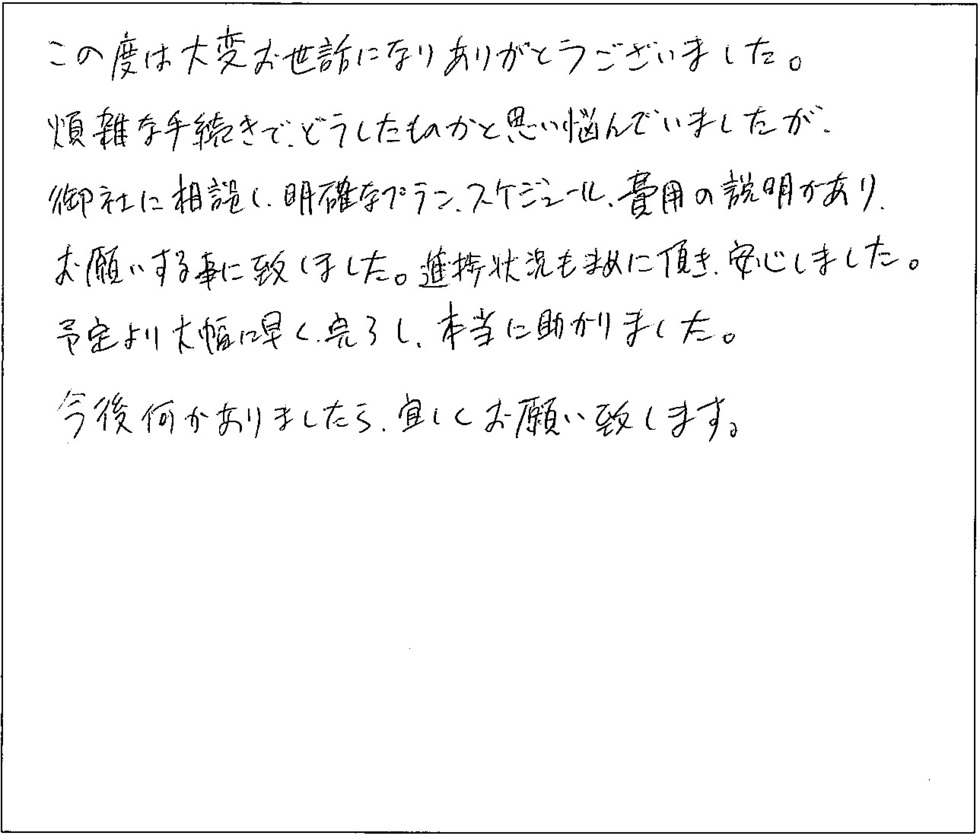 この度は大変お世話になりありがとうございました。
煩雑な手続きで、どうしたものかと思い悩んでいましたが、
御社に相談し、明確なプラン、スケジュール、費用の説明があり、
お願いする事に致しました。進捗状況もまめに頂き、安心しました。
予定より大幅に早く、完了し、本当に助かりました。
今後何かありましたら、宜しくお願い致します。